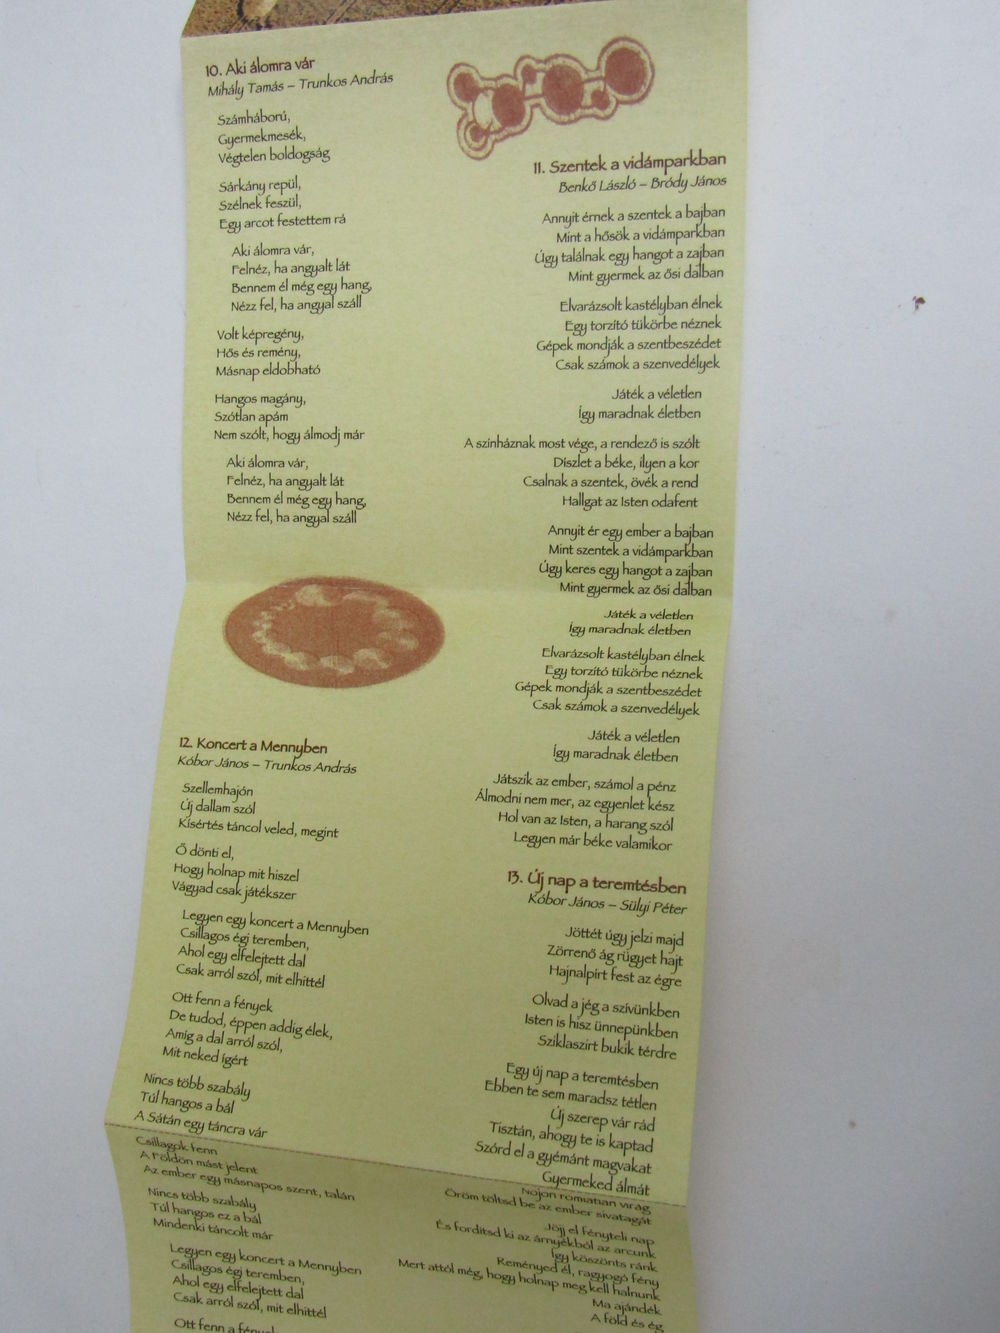 10. Aki álomra vár
Mihály Tamás – Trunkos András
Számháború,
Gyermekmesék,
Végtelen boldogság
Sárkány repül,
Szélnek feszül,
Egy arcot festettem rá
Aki álomra vár,
Felnéz, ha angyalt lát
Bennem él még egy hang,
Nézz fel, ha angyal száll
Volt képregény,
Hős és remény,
Másnap eldobható
Hangos magány,
Szótlan apám
Nem szólt, hogy álmodj már
Aki álomra vár,
Felnéz, ha angyalt lát
Bennem él még egy hang,
Nézz fel, ha angyal száll
11. Szentek a vidámparkban
Benkő László – Bródy János
Annyit érnek a szentek a bajban
Mint a hősök a vidámparkban
Úgy találnak egy hangot a zajban
Mint gyermek az ősi dalban
Elvarázsolt kastélyban élnek
Egy torzító tükörbe néznek
Gépek mondják a szentbeszédet
Csak számok a szenvedélyek
Játék a véletlen
Így maradnak életben
A színháznak most vége, a rendező is szólt
Díszlet a béke, ilyen a kor
Csalnak a szentek, övék a rend
Hallgat az Isten odafent
Annyit ér egy ember a bajban
Mint szentek a vidámparkban
Úgy keres egy hangot a zajban
Mint gyermek az ősi dalban
Játék a véletlen
Így maradnak életben
Elvarázsolt kastélyban élnek
Egy torzító tükörbe néznek
Gépek mondják a szentbeszédet
Csak számok a szenvedélyek
Játék a véletlen
Így maradnak életben
Játszik az ember, számol a pénz
Álmodni nem mer, az egyenlet kész
Hol van az Isten, a harang szól
Legyen már béke valamikor
12. Koncert a Mennyben
Kóbor János – Trunkos András
Szellemhajón
Új dallam szól
Kísértés táncol veled, megint
Ő dönti el,
Hogy holnap mit hiszel
Vágyad csak játékszer
Legyen egy koncert a Mennyben
Csillagos égi teremben,
Ahol egy elfelejtett dal
Csak arról szól, mit elhittél
Ott fenn a fények
De tudod, éppen addig élek,
Amíg a dal arról szól,
Mit neked ígért
Nincs több szabály
Túl hangos a bál
A Sátán egy táncra vár
Csillagok fenn
A Földön mást jelent
Az ember egy másnapos szent, talán
Nincs több szabály
Túl hangos ez a bál
Mindenki táncolt már
Legyen egy koncert a Mennyben
Csillagos égi teremben,
Ahol egy elfelejtett dal
Csak arról szól, mit elhittél
Ott fenn a
13. Új nap a teremtésben
Kóbor János – Sülyi Péter
Jöttét úgy jelzi majd
Zörrenő ág rügyet hajt
Hajnalpírt fest az égre
Olvad a jég a szívünkben
Isten is hisz ünnepünkben
Sziklaszirt bukik térdre
Egy új nap a teremtésben
Ebben te sem maradsz tétlen
Új szerep vár rád
Tisztán, ahogy te is kaptad
Szórd el a gyémánt magvakat
Gyermeked álmát
virág
Öröm töltsd be az ember sivatagát
Jöjj el fényteli nap
És fordítsd ki az árnyékból az arcunk
Így köszönts ránk
Reményed él, ragyogó fény
Mert attól még, hogy holnap meg kell halnunk
Ma ajándék
A föld és ég